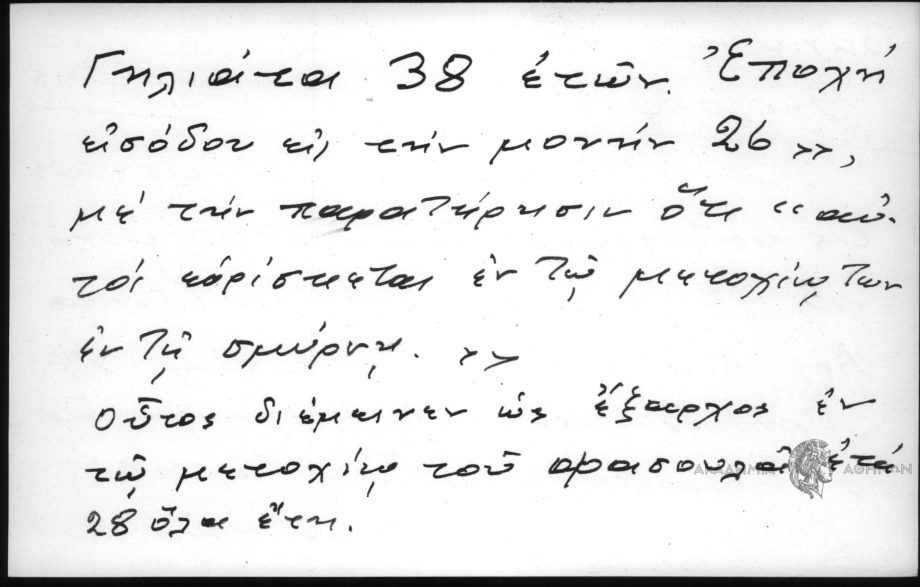 Γηλιάτα 38 ἐτῶν. Ἐποχή
εἰσόδου εἰς τήν μονήν 26 »,
μέ τήν παρατήρησιν ὅτι «αὐ-
τός εὑρίσκεται ἐν τῷ μετοχίῳ των
ἐν τῇ σμύρνῃ. »
Οὗτος διέμεινεν ὡς ἔξαρχος ἐν
τῷ μετοχίῳ τοῦ ἐπί
28 ὅλα ἔτη.
ΑΚΑΔΗΜΙΑ ΑΘΗΝΩΝ